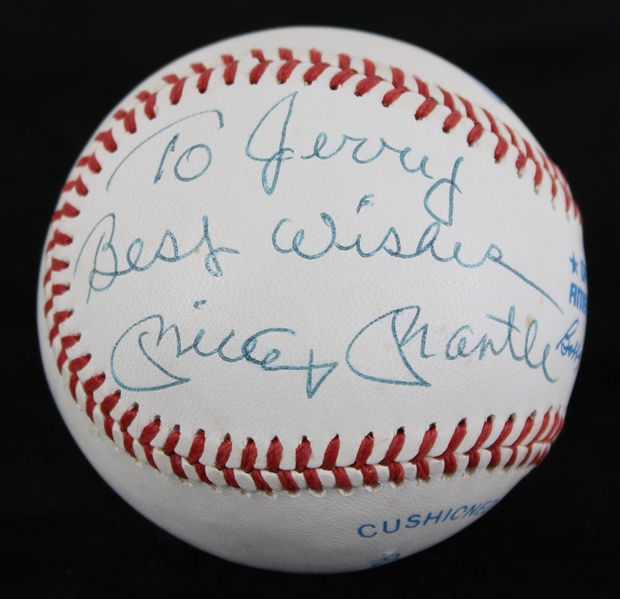 To Jerry
Best Wishes
Mickey Mantle
CUSHIONE